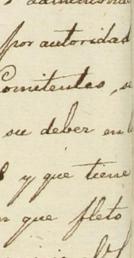 por autoridad
Comitentes, s
su deber en l
y que tiene
que fleto